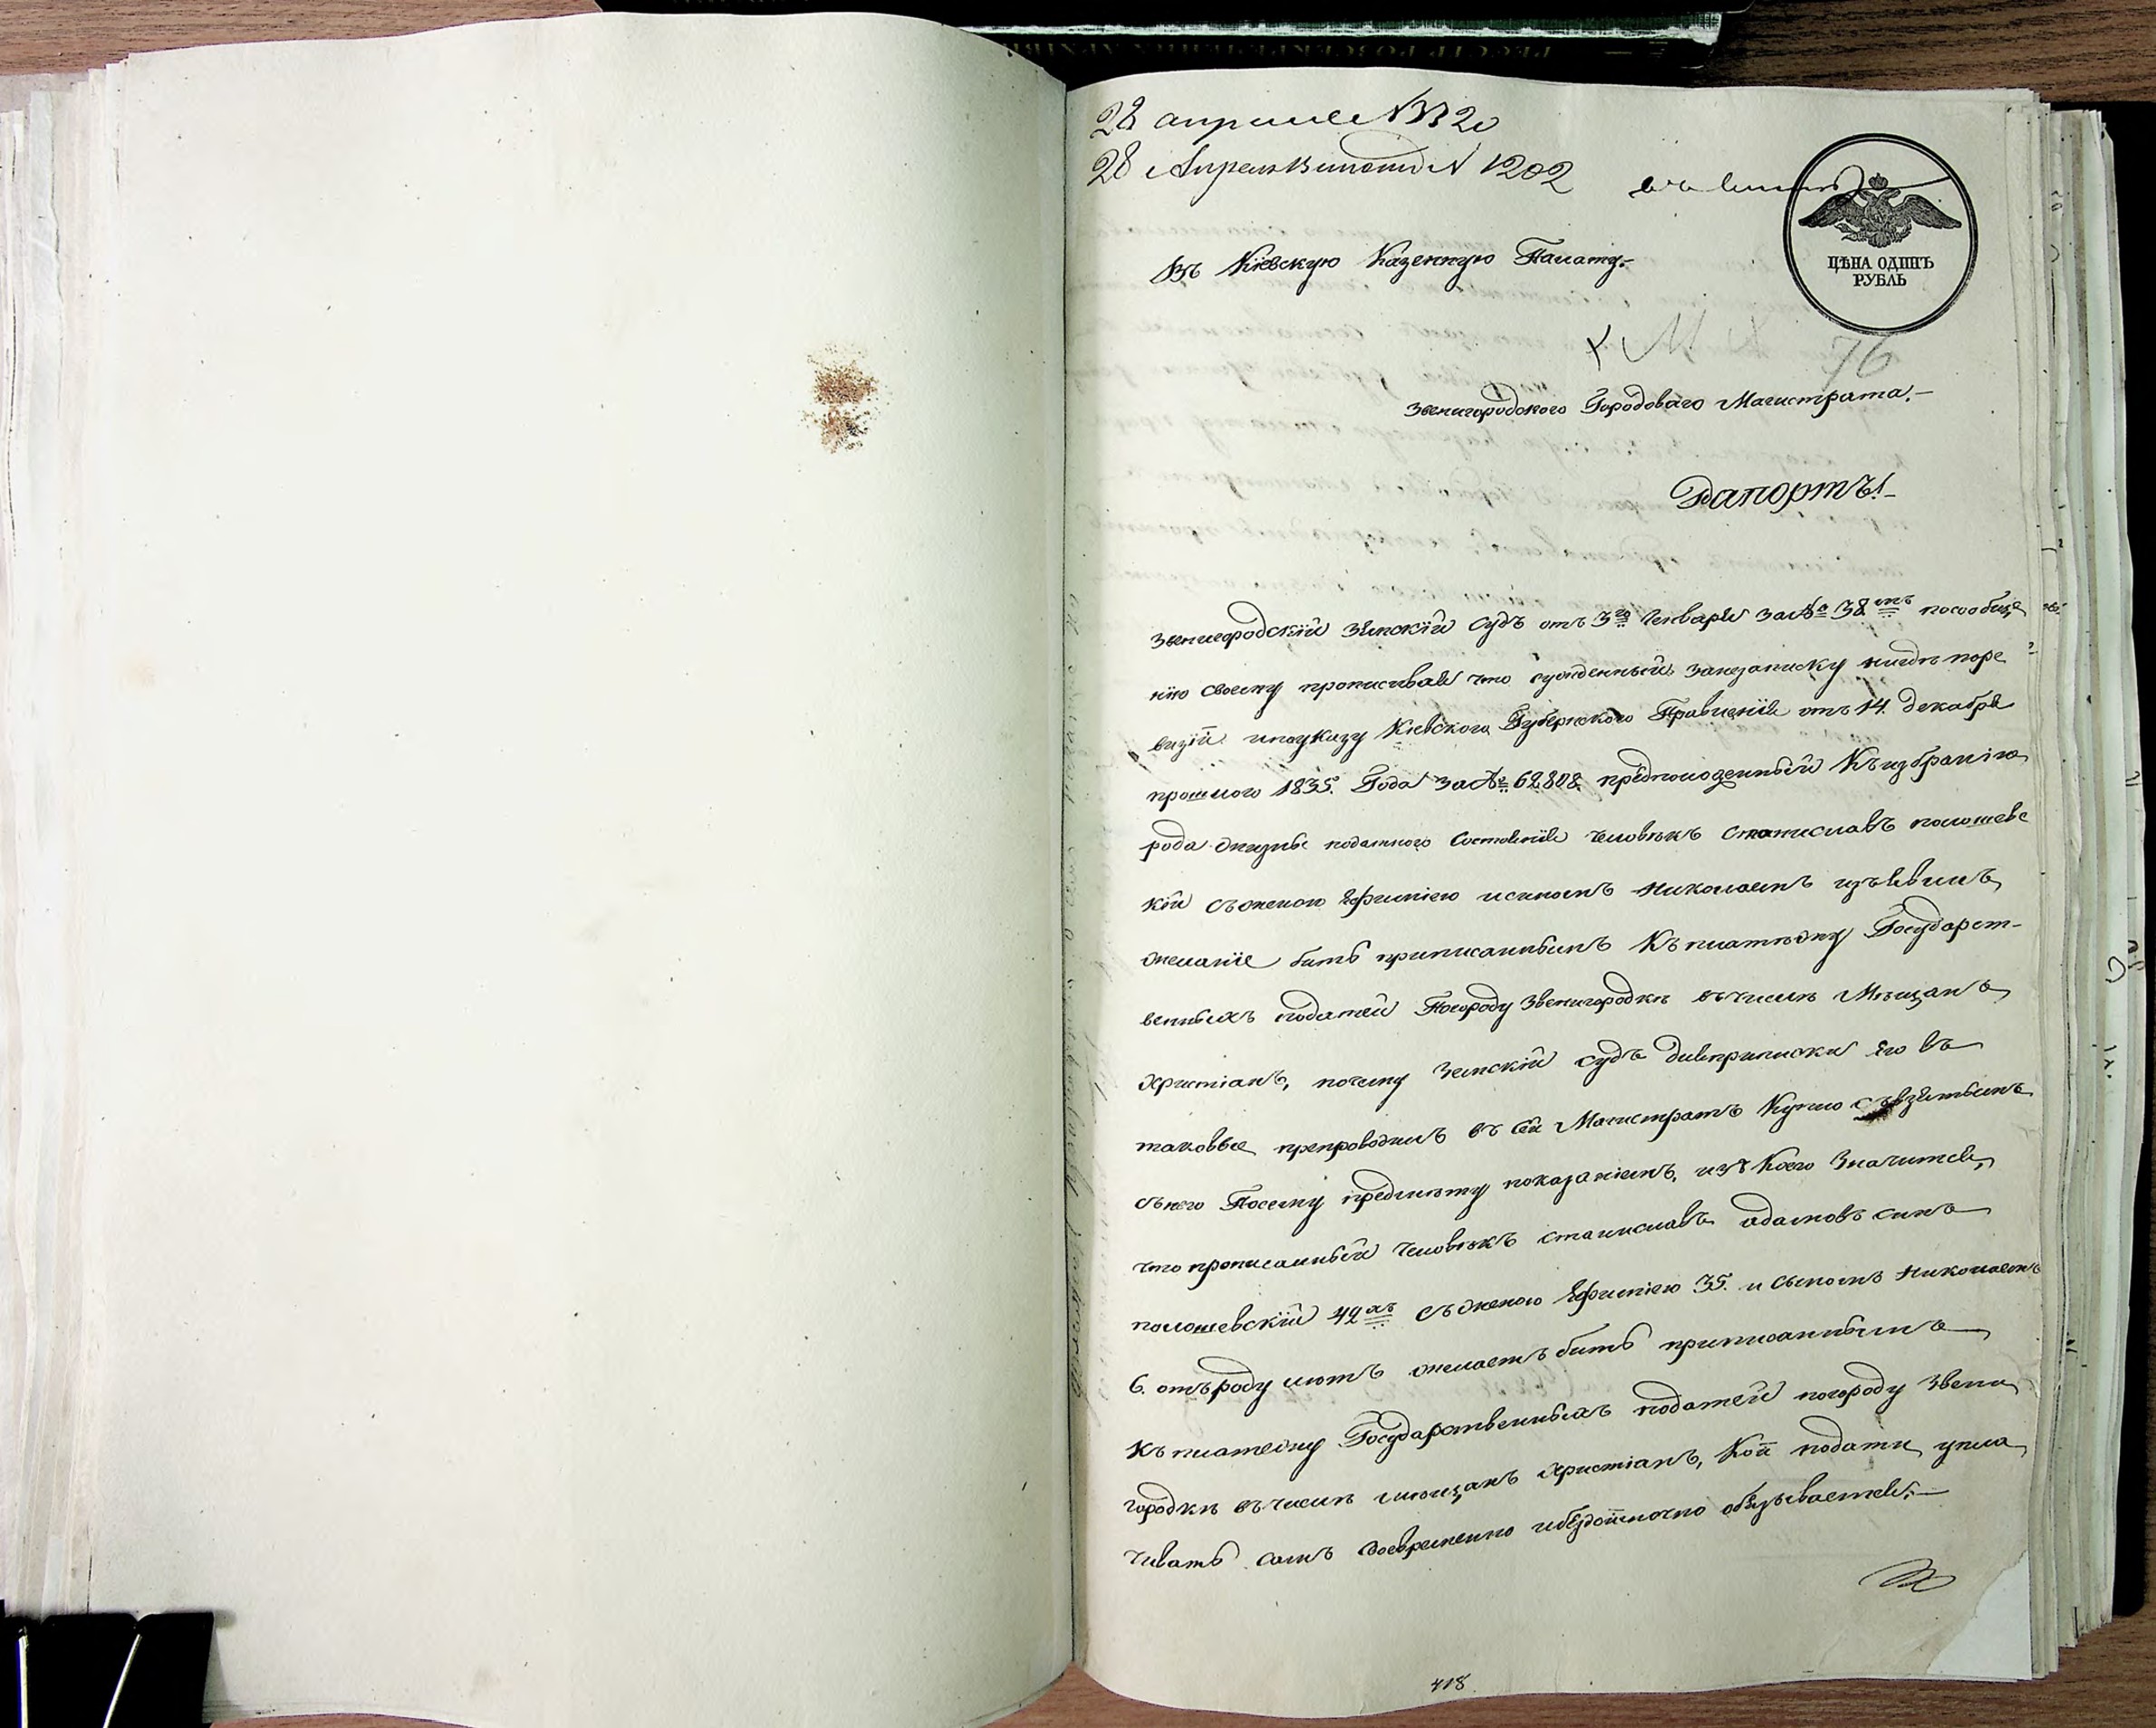 28 апреля № 3320
28 Апреля № 1202
ЦѢНА ОДИНЪ
РУБЛЬ
Въ Кіевскую Казенную Палату.
76
Звенигородского Городоваго Магистрата.
Рапортъ!
Звенигородскій Земскій Судъ отъ 3го Генваря за № 38мъ посообще
нію своему прописывая что сужденный занезаписку нигдѣ поре
визіи ипоуказу Кіевского Губернского Правленія отъ 14. декабря
прошлого 1835. Года за № 62808 предположенный Къизбранію
рода жизни податного Состоянія человѣкъ Станиславъ полошевс
кій съженою Ефиміею исыномъ николаемъ изъявилъ
желаніе быть приписаннымъ Къплатежу Государст-
венныхъ податей Погороду Звенигородкѣ вчислѣ Мѣщанъ
Христіанъ, почему Земскій судъ дляприписки его въ
таковые препроводилъ въ сей Магистратъ Купно съвзятымъ
сънего Посему предмѣту показаніемъ, изъ Коего Значится,
что прописанный Человѣкъ станиславъ адамовъ сынъ
полошевскій 42хъ съженою Ефиміею 35. и сыномъ николаемъ
6. отъроду лѣтъ желаетъ быть приписаннымъ
Къплатежу Государственныхъ податей погороду Звени
городкѣ вчислѣ мѣщанъ христіанъ, Кои подати упла
чивать самъ Своевременно ибездоимочно обязывается.
418